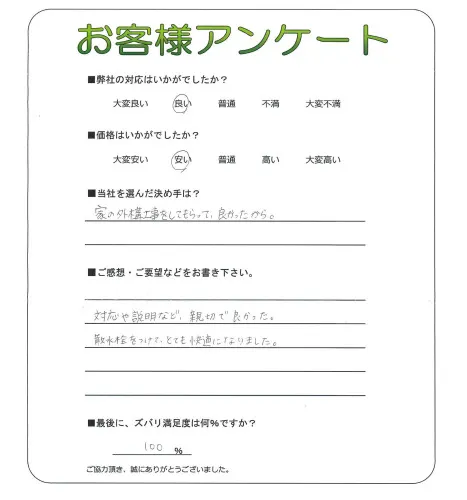 お客様アンケート
■弊社の対応はいかがでしたか？
大変良い 良い 普通 不満 大変不満
■価格はいかがでしたか？
大変安い 安い 普通 高い 大変高い
■当社を選んだ決め手は？
家の外構工事をしてもらって、良かったから。
■ご感想・ご要望などをお書き下さい。
対応や説明など、親切で良かった。
散水栓をつけて、とても快適になりました。
■最後に、ズバリ満足度は何%ですか？
100 %
ご協力頂き、誠にありがとうございました。